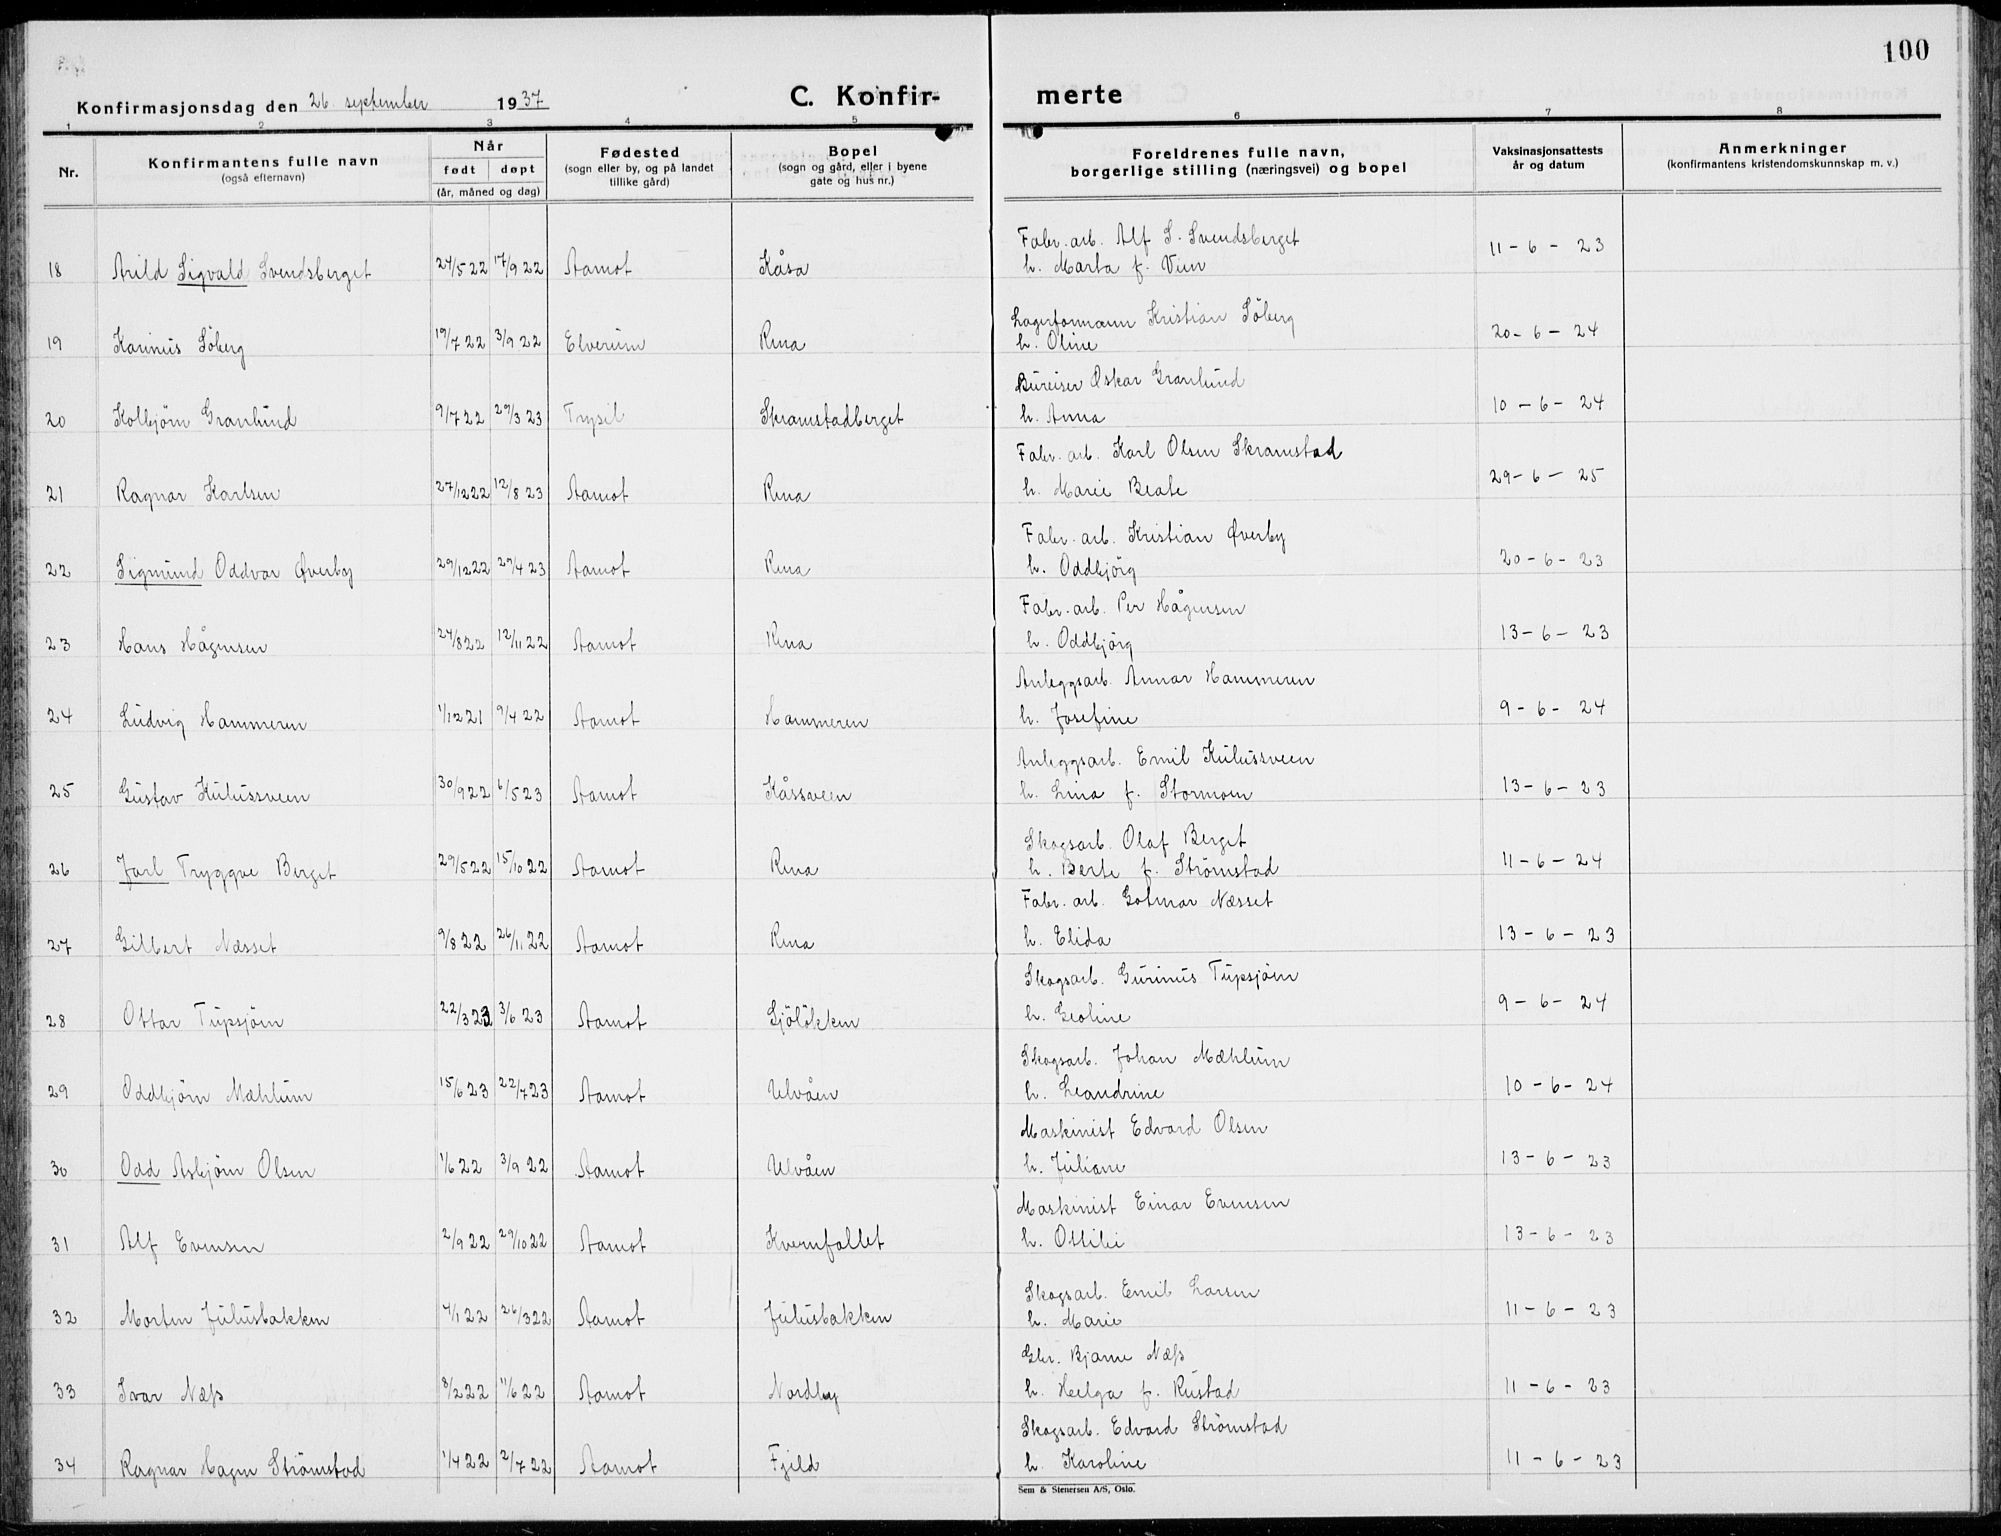 100
Konfirmasjonsdag den 26 september 1937 C. Konfir- merte
1 2 3 4 5 6 7 8
Nr. Konfirmantens fulle navn (også efternavn) Når født døpt (år, måned og dag) Fødested (sogn eller by, og på landet tillike gård) Bopel (sogn og gård, eller i byene gate og hus nr.) Foreldrenes fulle navn, borgerlige stilling (næringsvei) og bopel Vaksinasjonsattests år og datum Anmerkninger (konfirmantens kristendomskunnskap m. v.)
Fabr. arb. Alf S. Svendsberget
18 Arild Sigvald Svendsberget 24/5 22 17/9 22 Aamot Kåsa h. Marta f. Vien 11-6-23
Lagerformann Kristian Söberg
19 Karinus Söberg 19/7 22 3/9 22 Elverum Rena h. Oline 20-6-24
Bureiser Oskar Granlund
20 Kolbjörn Granlund 9/7 22 29/3 23 Trysil Skramstadberget h. Anna 10-6-24
Fabr. arb. Karl Olsen Skramstad
21 Ragnar Karlsen 27/12 22 12/8 23 Aamot Rena h. Marie Beate 29-6-25
Fabr. arb. Kristian Øverby
22 Sigmund Oddvar Øverby 29/12 22 29/4 23 Aamot Rena h. Oddbjörg 20-6-23
Fabr. arb. Per Hågensen
23 Hans Hågensen 24/8 22 12/11 22 Aamot Rena h. Oddbjörg 13-6-23
Anleggsarb. Annar Hammeren
24 Ludvig Hammeren 1/12 21 9/4 22 Aamot Hammeren h. Josefine 9-6-24
Anleggsarb. Emil Kulussveen
25 Gustav Kulussveen 30/9 22 6/5 23 Aamot Kåssveen h. Lina f. Stormoen 13-6-23
Skogsarb. Olaf Berget
26 Jarl Tryggve Berget 29/5 22 15/10 22 Aamot Rena h. Berte f. Strömstad 11-6-24
Fabr. arb. Gotmar Næsset
27 Gilbert Næsset 9/8 22 26/11 22 Aamot Rena h. Elida 13-6-23
Skogsarb. Gurinus Tupsjöen
28 Ottar Tupsjöen 22/3 23 3/6 23 Aamot Sjölökken h. Geoline 9-6-24
Skogsarb. Johan Mæhlum
29 Oddbjörn Mæhlum 15/6 23 22/7 23 Aamot Ulvåen h. Leandrine 10-6-24
Maskinist Edvard Olsen
30 Odd Asbjörn Olsen 1/6 22 3/9 22 Aamot Ulvåen h. Juliane 13-6-23
Maskinist Einar Evensen
31 Alf Evensen 2/9 22 29/10 22 Aamot Kvernfallet h. Ottilie 13-6-23
Skogsarb. Emil Larsen
32 Morten Julusbakken 4/1 22 26/3 22 Aamot Julusbakken h. Marie 11-6-23
Gbr. Bjarne Næss
33 Ivar Næss 8/2 22 11/6 22 Aamot Nordby h. Helga f. Rustad 11-6-23
Skogsarb. Edvard Strömstad
34 Ragnar Hagen Strömstad 1/4 22 2/7 22 Aamot Fjeld h. Karoline 11-6-23
Sem & Stenersen A/S, Oslo.